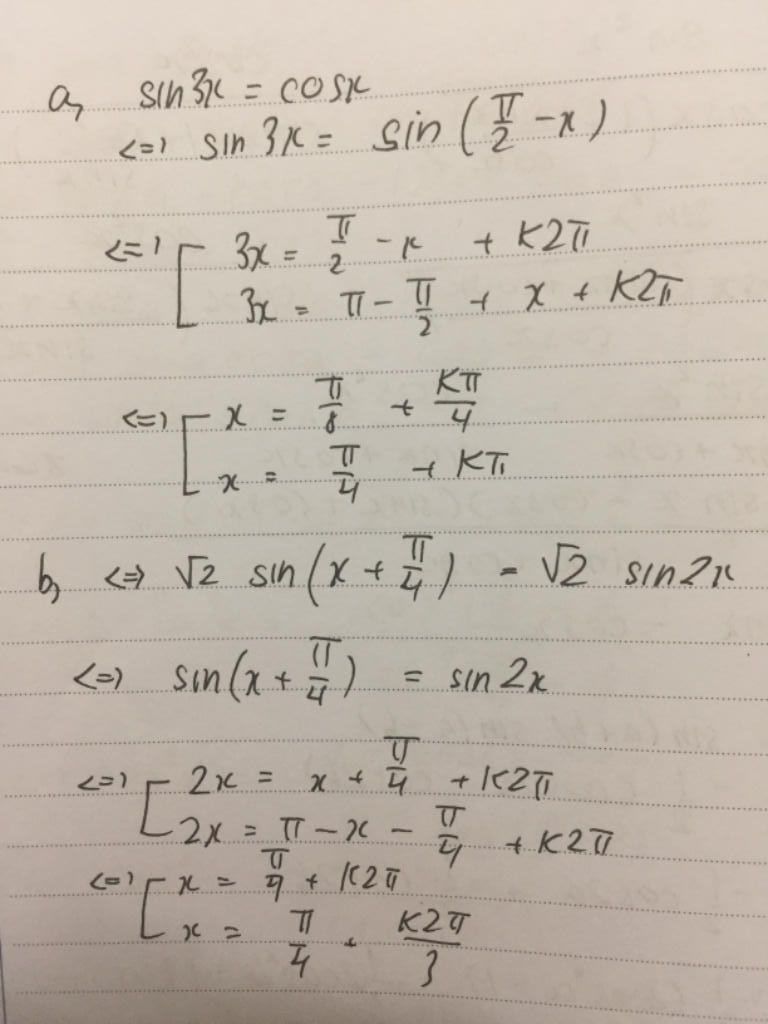 a, sin3x = cosx
<=> sin 3x = sin (π/2 - x)
<=> [ 3x = π/2 - x + K2π
3x = π - π/2 + x + K2π
<=> [ x = π/8 + Kπ/4
x = π/4 + Kπ
b, <=> √2 sin(x + π/4) = √2 sin2x
<=> sin(x + π/4) = sin2x
<=> [ 2x = x + π/4 + K2π
2x = π - x - π/4 + K2π
<=> [ x = π/4 + K2π
x = π/4 + K2π/3